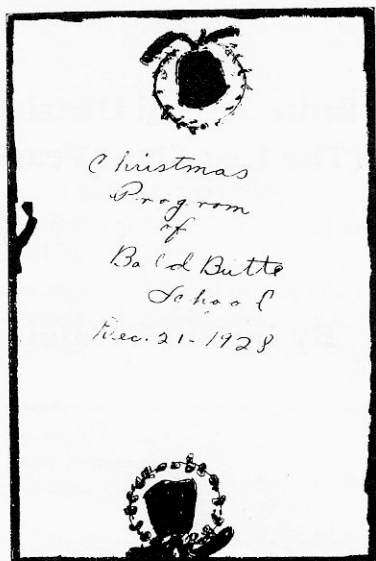 Christmas
Program
of
Bald Butte
School
Dec. 21-1928